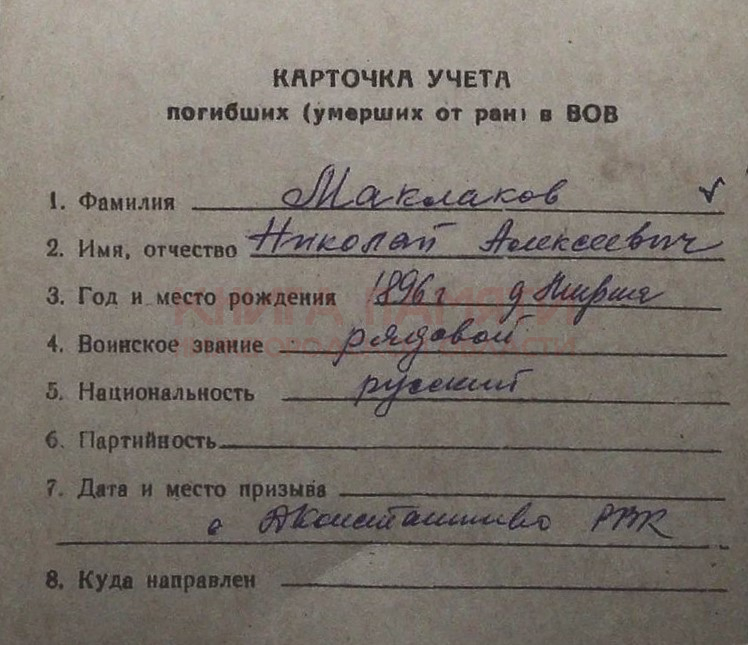 КАРТОЧКА УЧЕТА
погибших (умерших от ран) в ВОВ
1. Фамилия Маклаков
2. Имя, отчество Николай Алексеевич
3. Год и место рождения 1896 г д
КНИГА ПАМЯТИ
4. Воинское звание рядовой
НИЖЕГОРОДСКОЙ ОБЛАСТИ
5. Национальность русский
6. Партийность
7. Дата и место призыва
с ДКонстантиново РВК
8. Куда направлен